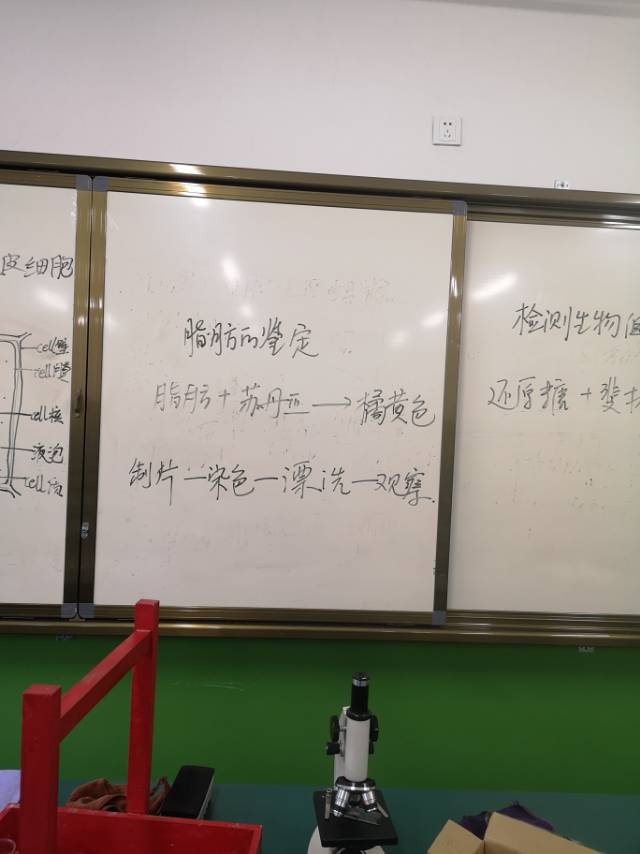 皮细胞
cell壁
cell膜
cell核
液泡
cell液
脂肪的鉴定
脂肪+苏丹Ⅲ→橘黄色
制片—染色—漂洗—观察
检测生物
还原糖+斐林